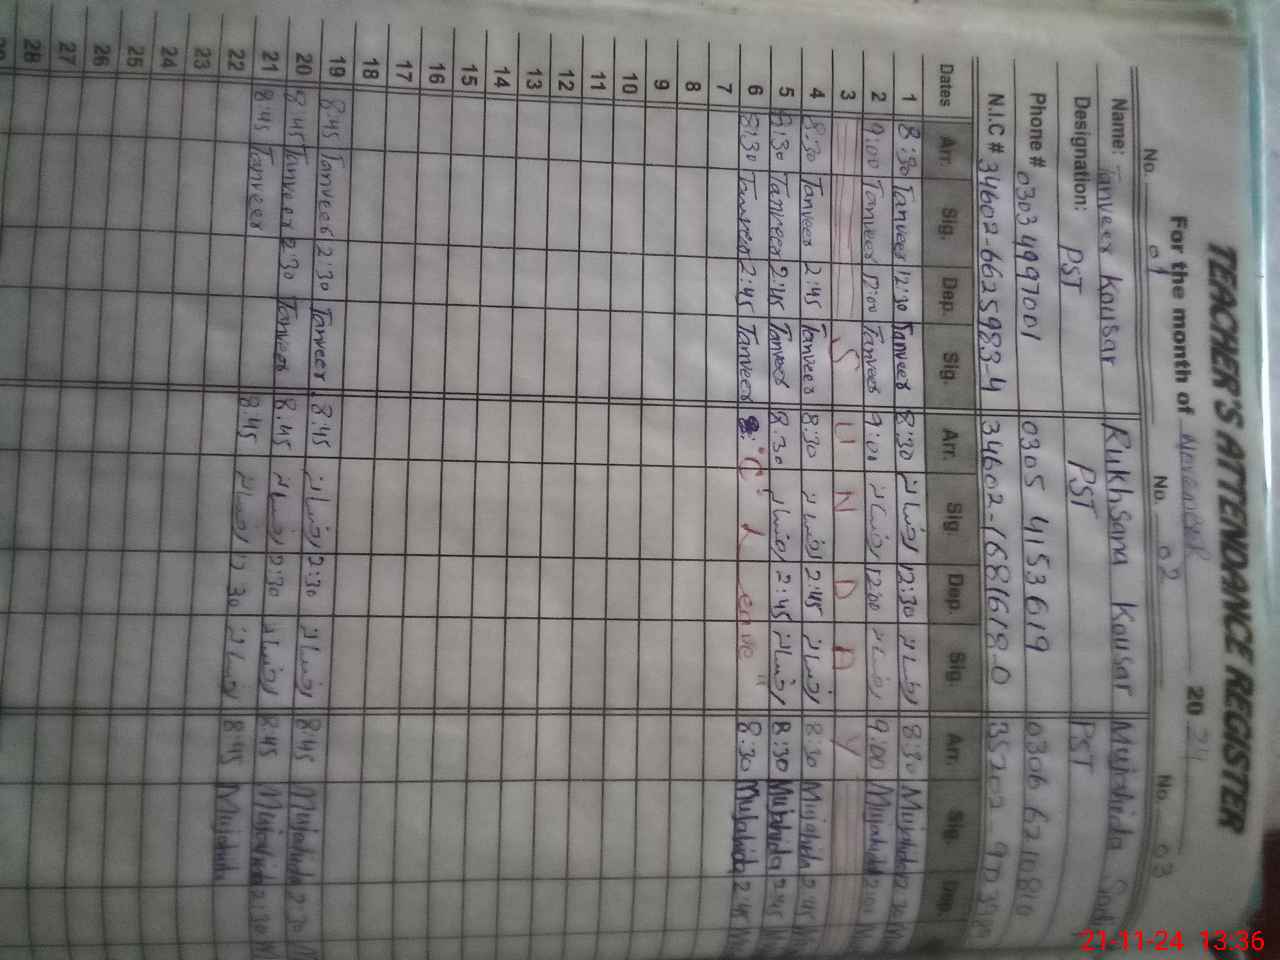 TEACHER'S ATTENDANCE REGISTER
For the month of November 2024
No. 01 No. 02 No. 03
Name: Tanveer Kousar Rukhsana Kousar Mujahida
Designation: PST PST PST
Phone # 0303 4997001 0305 4153619 0306 6210810
N.I.C # 34602-6625983-4 34602-1681618-0 35202
Dates Arr. Sig. Dep. Sig. Arr. Sig. Dep. Sig. Arr. Sig. Dep.
1 8:30 Tanveer 12:30 Tanveer 8:30 رخسانہ 12:30 رخسانہ 8:30 Mujahida
2 9:00 Tanveer 12:00 Tanveer 9:00 رخسانہ 12:00 رخسانہ 9:00 Mujahida
3 S U N D A Y
4 8:30 Tanveer 2:45 Tanveer 8:30 رخسانہ 2:45 رخسانہ 8:30 Mujahida 2:45
5 8:30 Tanveer 2:45 Tanveer 8:30 رخسانہ 2:45 رخسانہ 8:30 Mujahida 2:45
6 8:30 Tanveer 2:45 Tanveer "C. Leave" 8:30 Mujahida 2:45
7
8
9
10
11
12
13
14
15
16
17
18
19 8:45 Tanveer 2:30 Tanveer 8:45 رخسانہ 2:30 رخسانہ 8:45 Mujahida 2:30
20 8:45 Tanveer 2:30 Tanveer 8:45 رخسانہ 2:30 رخسانہ 8:45 Mujahida 2:30
21 8:45 Tanveer 8:45 رخسانہ 2:30 رخسانہ 8:45 Mujahida
22
23
24
25
26
27
28
21-11-24 13:36